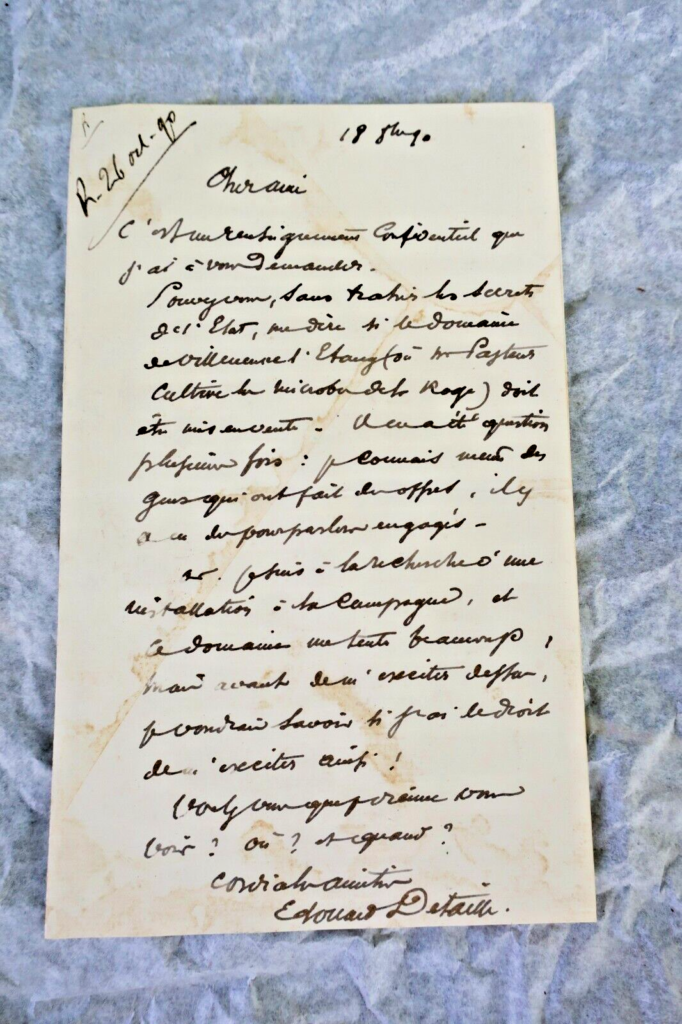 R. 26 oct. 90
18 8bre 90
Cher ami
C'est un renseignement confidentiel que
j'ai à vous demander.
Pouvez vous, sans trahir les secrets
de l'Etat, me dire si le domaine
de Villeneuve l'Etang (où Mr Pasteur
cultive les microbes de la Rage) doit
être mis en vente. Il en a été question
plusieurs fois : je connais même des
gens qui ont fait des offres, il y
a eu des pourparlers engagés -
Je suis à la recherche d'une
installation à la campagne, et
ce domaine me tente beaucoup,
mais avant de m'exciter dessus,
je voudrais savoir si j'ai le droit
de m'exciter ainsi !
Voulez vous que je vienne vous
voir ? où ? et quand ?
Cordiales amitiés
Edouard Detaille.